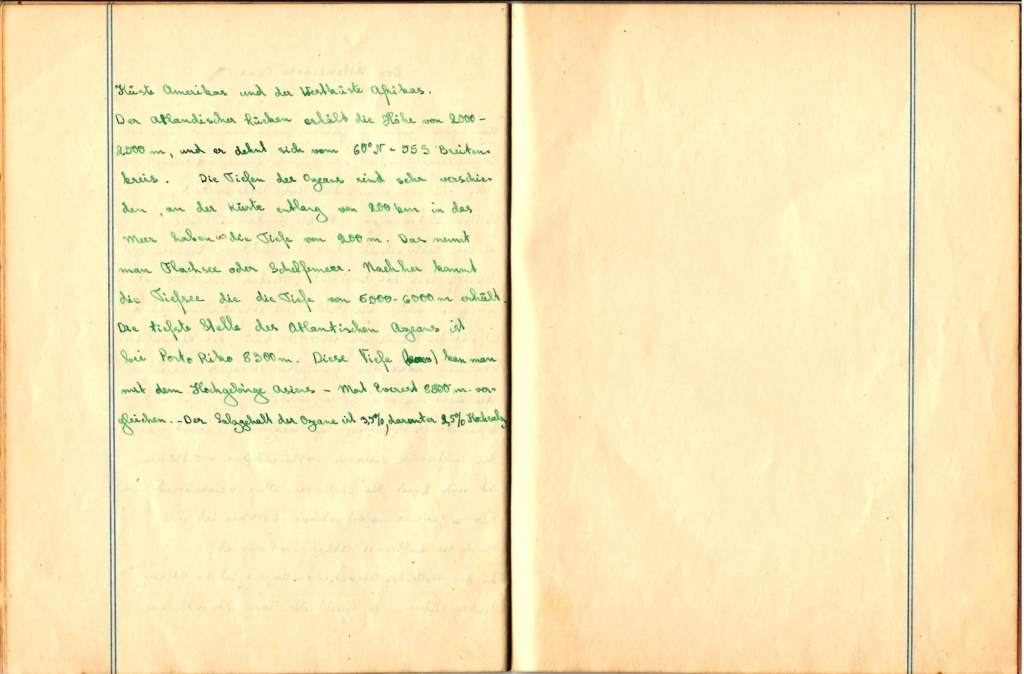 Küste Amerikas und der Westküste Afrikas.
Der Atlandischer Rücken erhält die Höhe von 2000-
2500 m, und er dehnt sich vom 60°N - 55S Breiten-
kreis. Die Tiefen des Ozeans sind sehr verschie-
den, an der Küste entlang von 200 km in das
Meer haben wir die Tiefe von 200 m. Das nennt
man Flachsee oder Schelfemeer. Nachher kommt
die Tiefsee die die Tiefe von 5000-6000 m erhält.
Die tiefste Stelle des Atlantischen Ozeans ist
bei Porto Riko 8300 m. Diese Tiefe kan man
mit dem Hochgebirge Asiens - Mot Everest 8800 m. ver-
gleichen. - Der Salzgehalt der Ozane ist 3,5%, darunter 2,5% Kochsalz